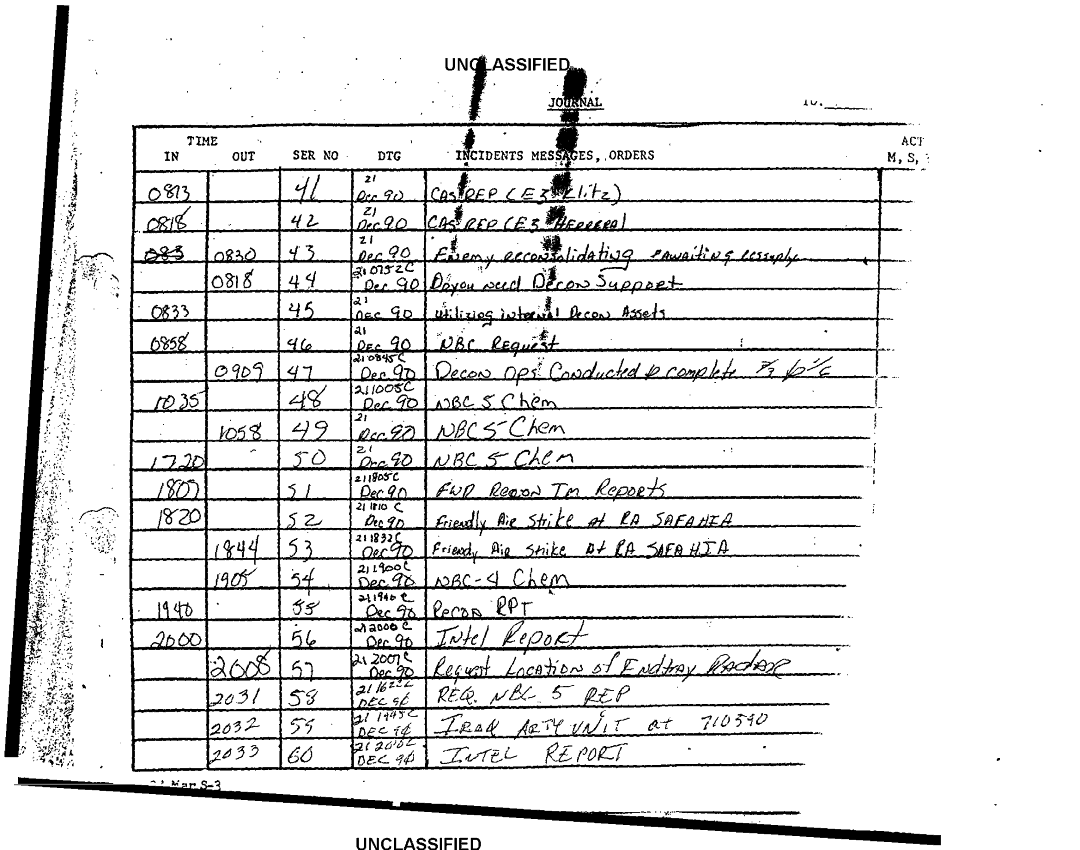 UNCLASSIFIED
JOURNAL
TIME ACT
IN OUT SER NO DTG INCIDENTS MESSAGES, ORDERS M, S,
0813 41 21 Dec 90 CAS REP (E3 Klitz)
0818 42 21 Dec 90 CAS REP (E3 HERRERA)
083 0830 43 21 Dec 90 Enemy reconsolidating awaiting
0818 44 210752C Dec 90 Do you need Decon Support
0833 45 21 DEC 90 utilizing internal Decon Assets
0858 46 21 DEC 90 NBC Request
0909 47 210845C Dec 90 Decon Ops Conducted complete
1035 48 211005C Dec 90 NBC 5 Chem
1058 49 21 Dec 90 NBC 5 Chem
1720 50 21 Dec 90 NBC 5 Chem
1807 51 211805C Dec 90 FWD Recon Tm Reports
1820 52 211810 C Dec 90 Friendly Air Strike at RA SAFAHIA
1844 53 211832C Dec 90 Friendly Air Strike At RA SAFAHIA
1905 54 211900C Dec 90 NBC-4 Chem
1940 55 211940 C Dec 90 Recon RPT
2000 56 212000 C Dec 90 Intel Report
2008 57 212007C Dec 90 Request Location of Radar
2031 58 DEC 90 REQ. NBC 5 REP
2032 59 21 1945C DEC 90 IRAQ ARTY UNIT at 710590
2033 60 21 2000C DEC 90 INTEL REPORT
Mar S-3
UNCLASSIFIED